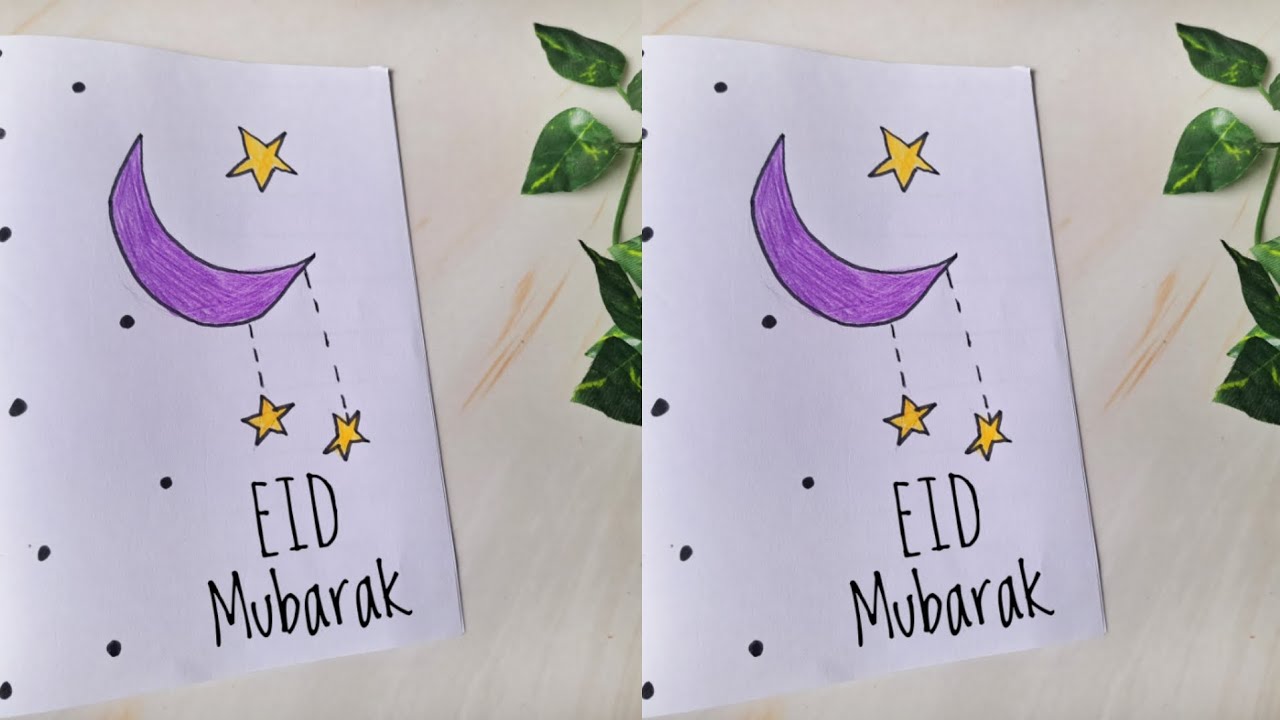 EID
Mubarak
EID
Mubarak